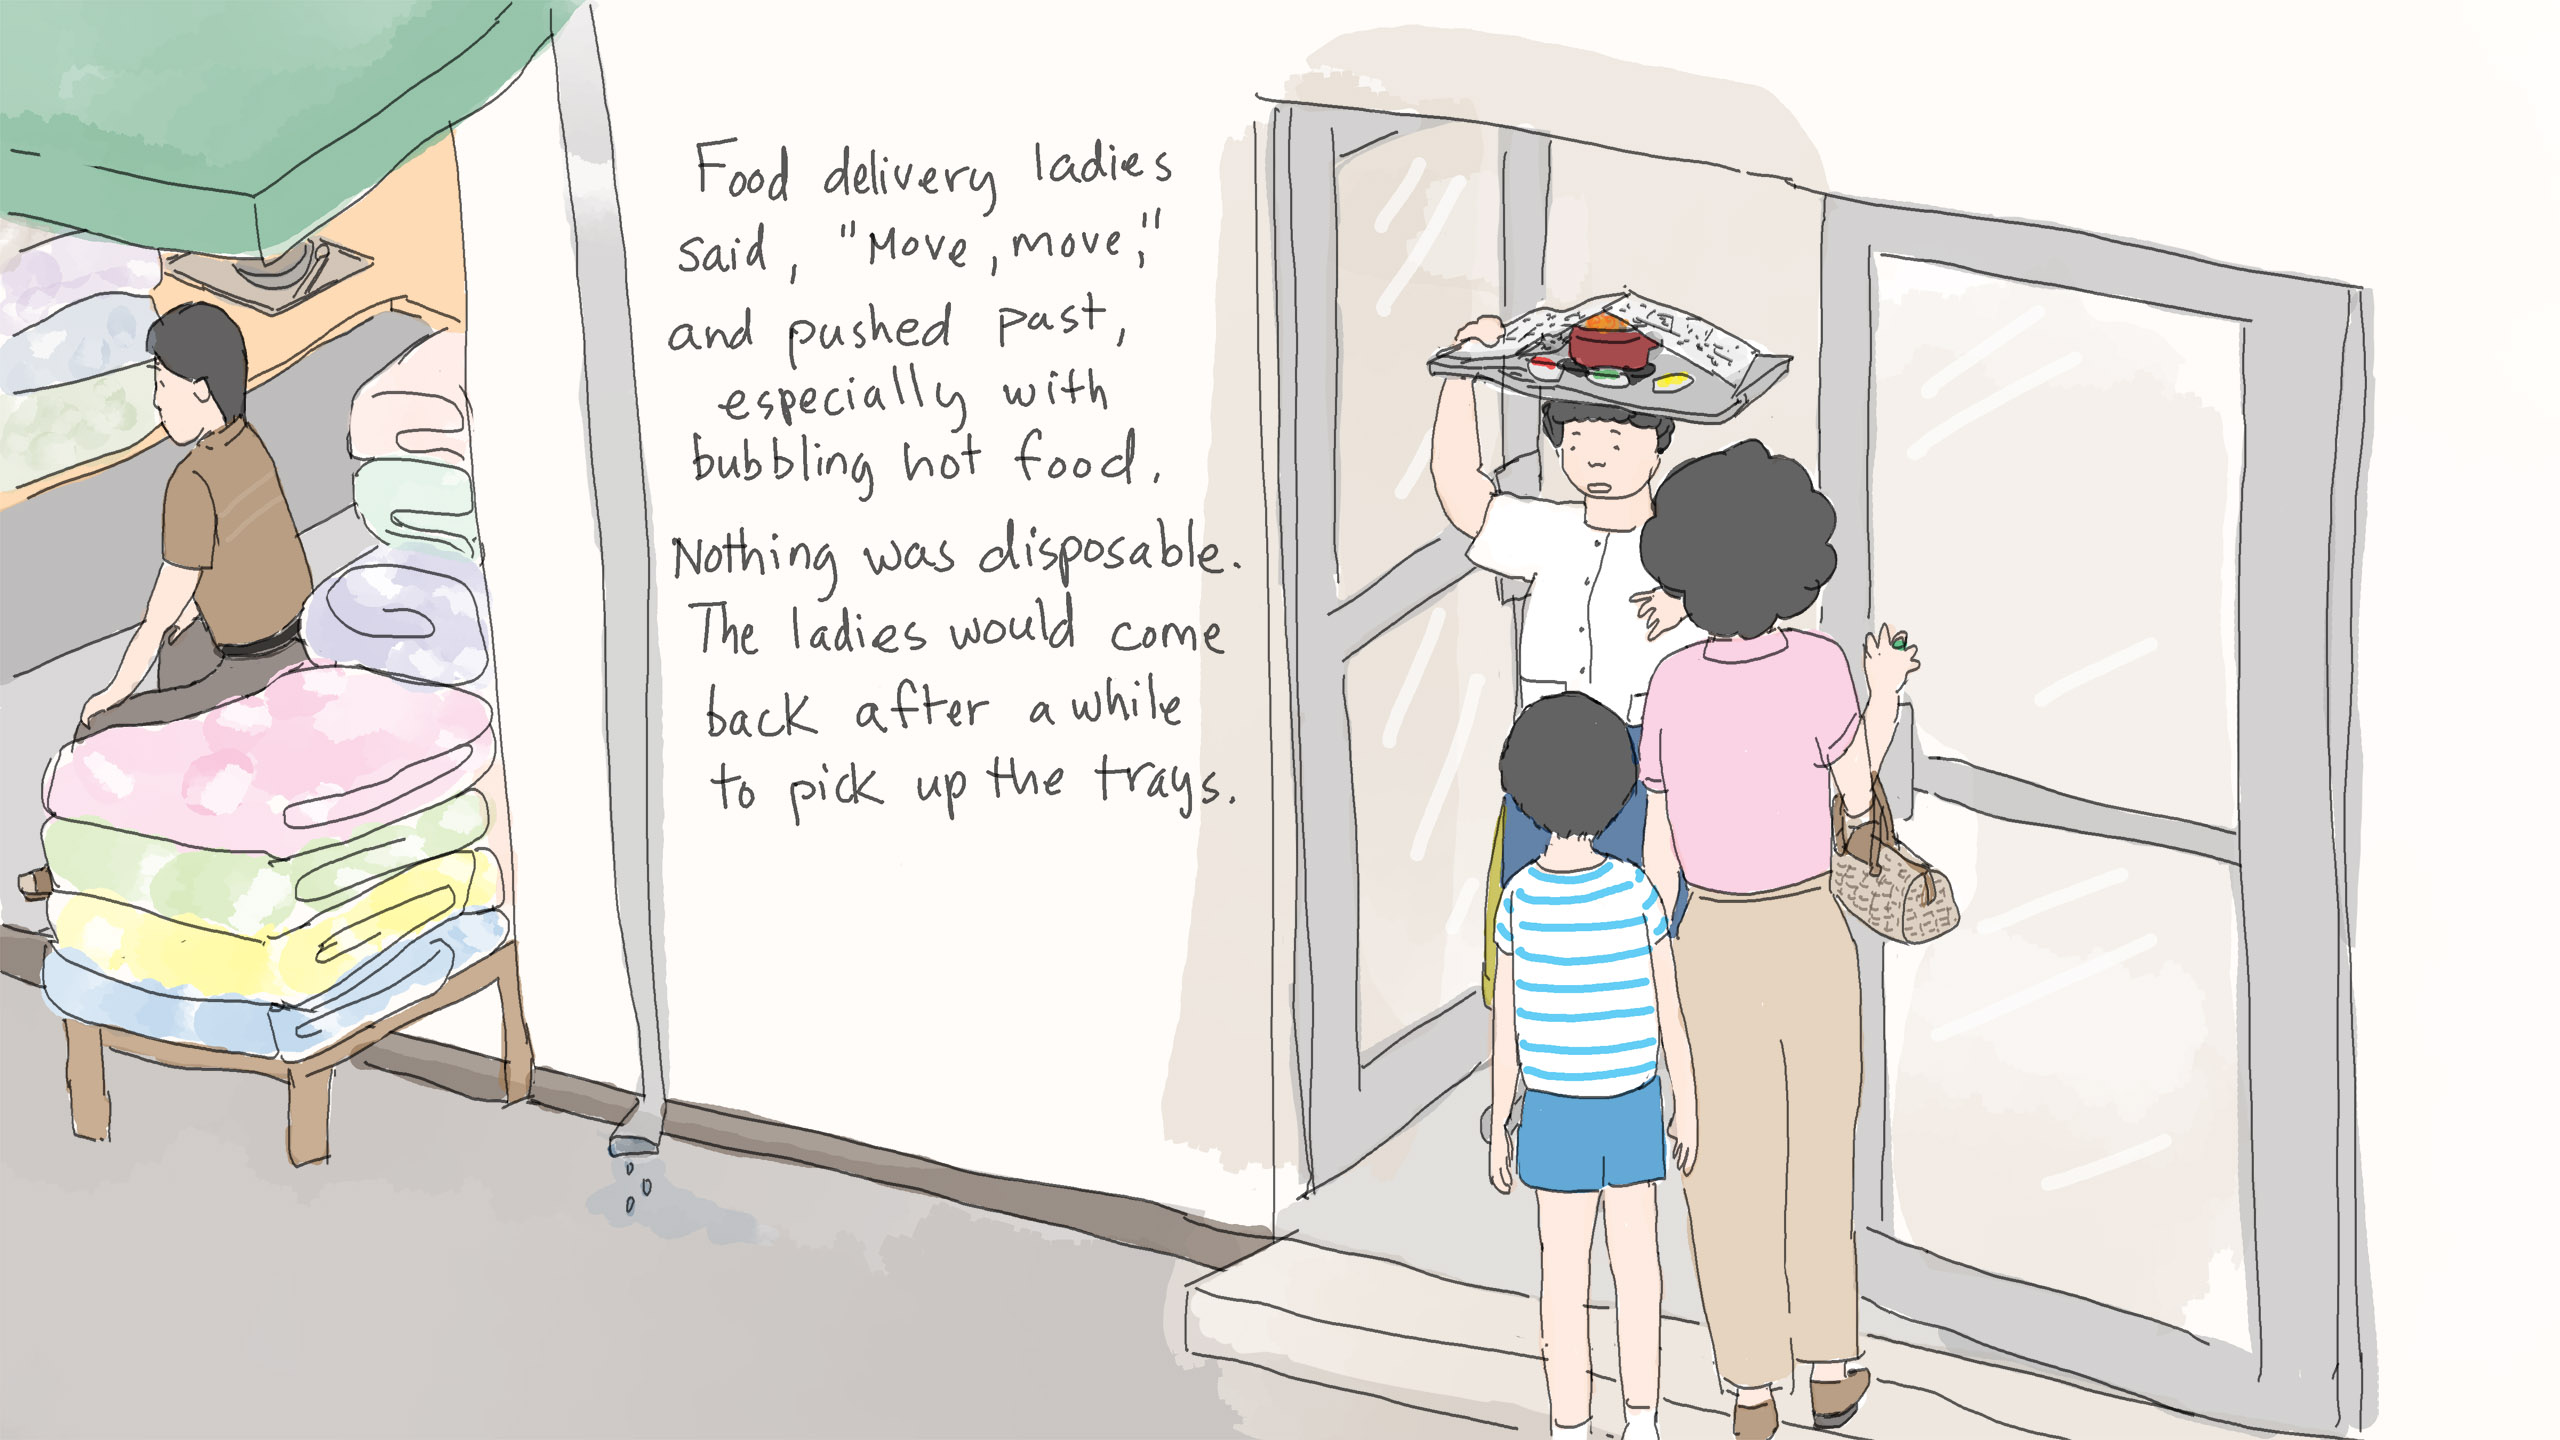 Food delivery ladies
said, "Move, move,"
and pushed past,
especially with
bubbling hot food.
Nothing was disposable.
The ladies would come
back after a while
to pick up the trays.